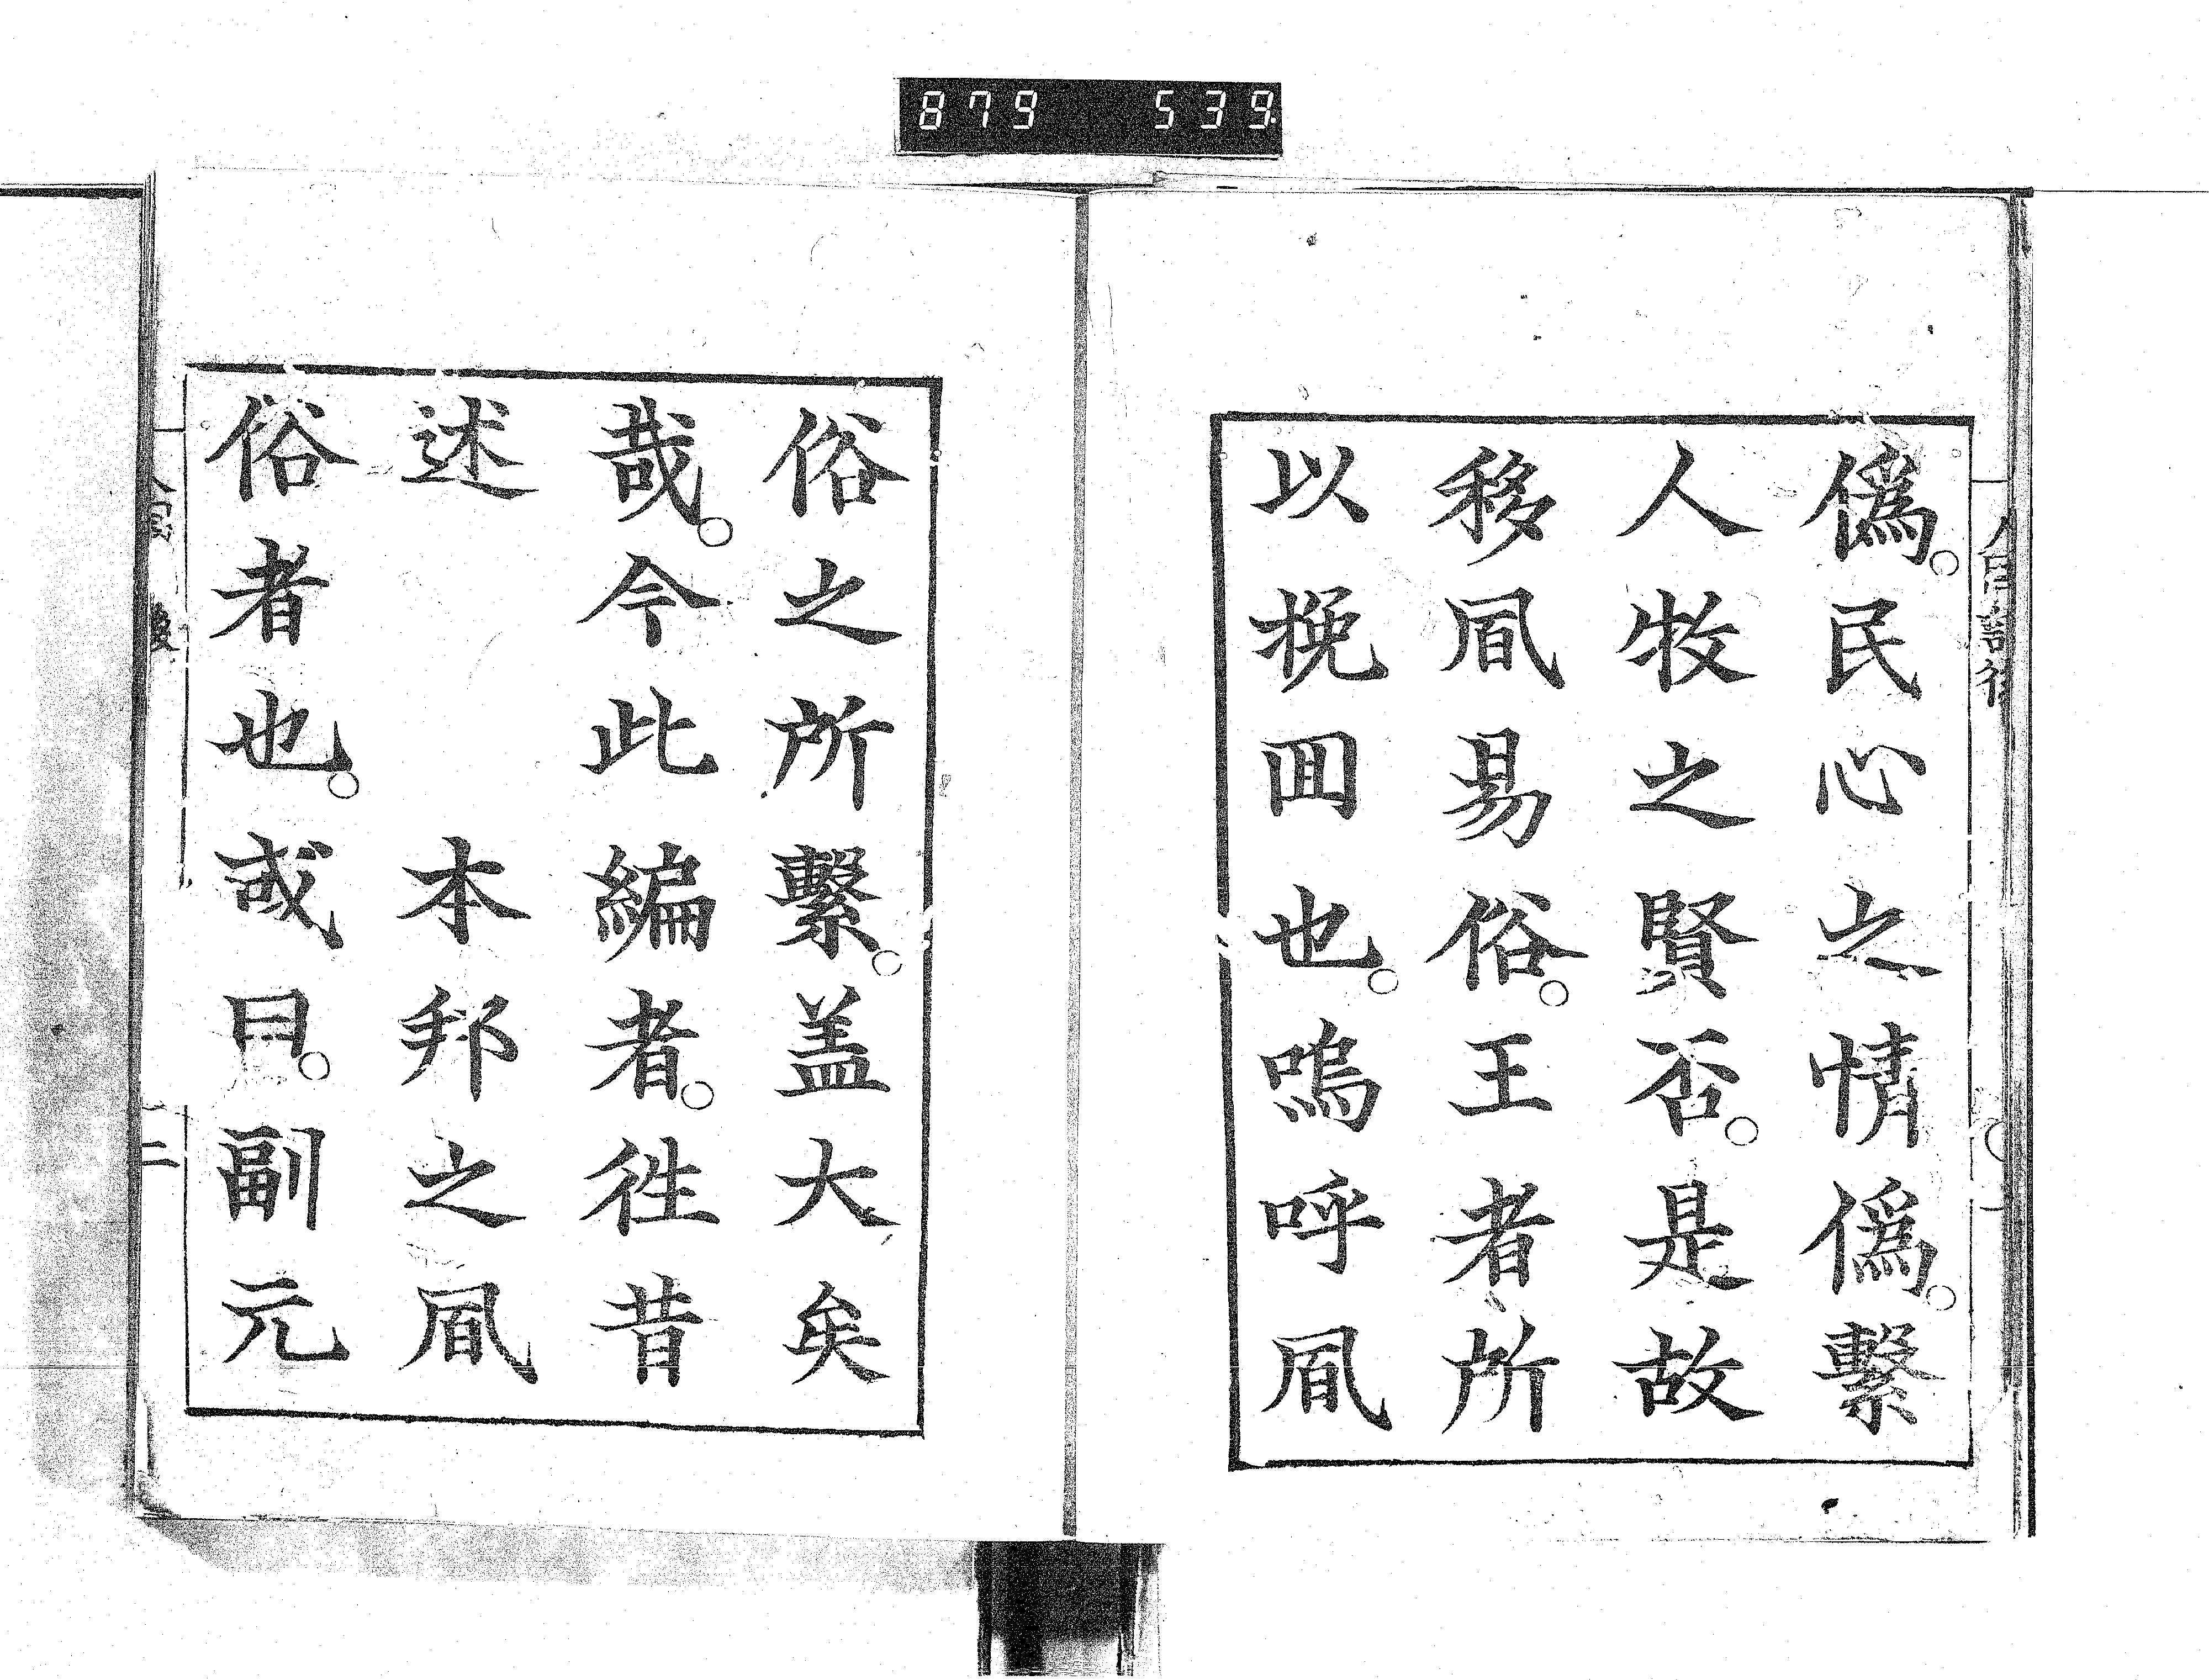 879 539
僞。民心之情僞。繫
人牧之賢否。是故
移凬易俗。王者所
以挽囬也。嗚呼凬
俗之所繫。盖大矣
哉。今此編者。徃昔
述　　本邦之凬
俗者也。或曰。副元
二